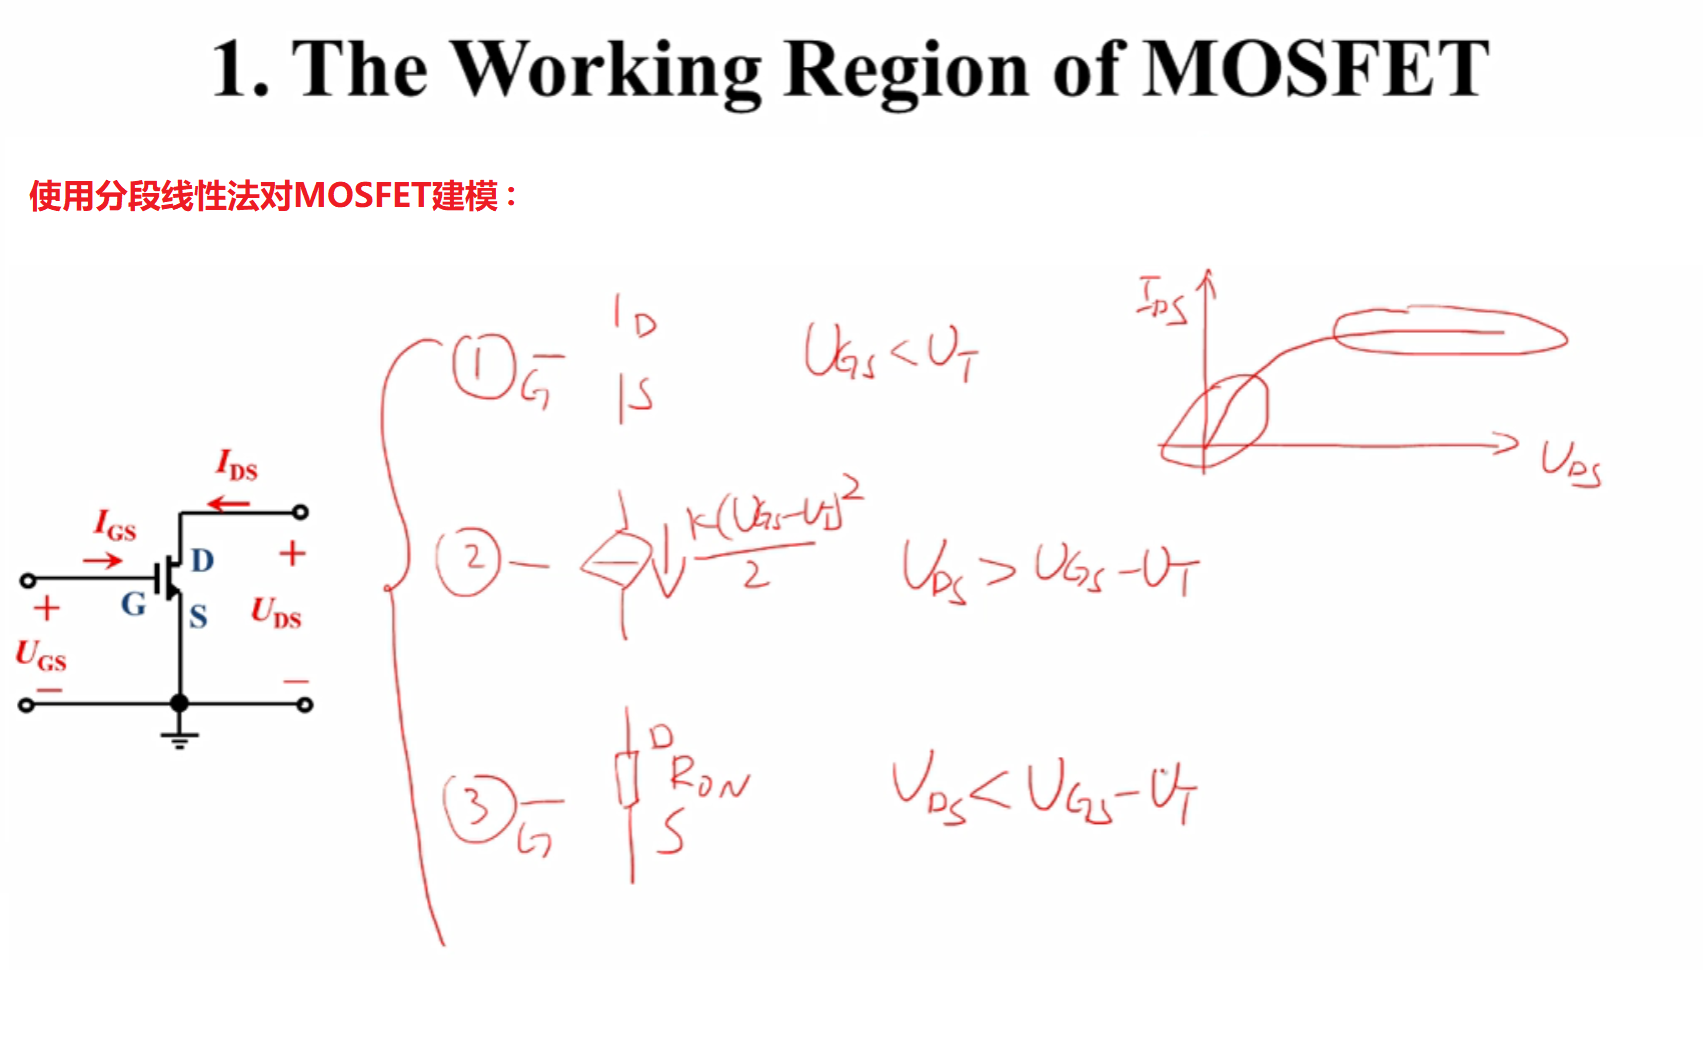 1. The Working Region of MOSFET
使用分段线性法对MOSFET建模：
I_DS
I_GS
D
G
S
+
+
U_GS
U_DS
−
−
① G D S U_GS < U_T
② K(U_GS − U_T)² / 2 U_DS > U_GS − U_T
③ G D R_ON S U_DS < U_GS − U_T
I_DS
U_DS